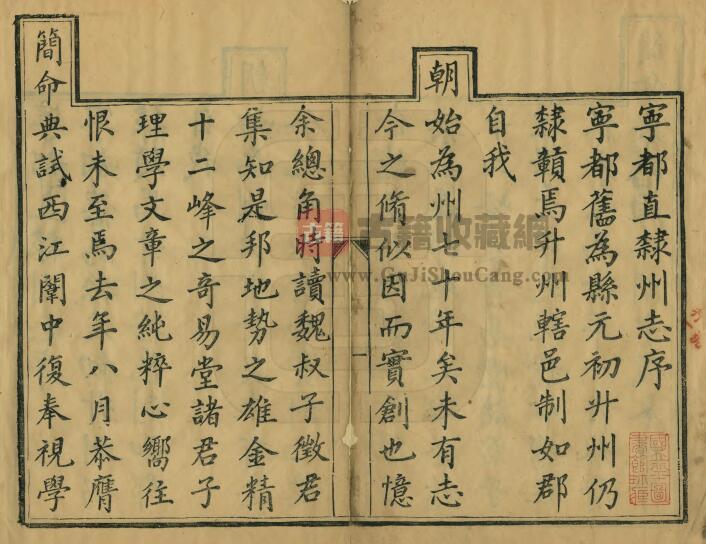 寧都直隸州志序
寧都舊為縣元初升州仍
隸贛焉升州轄邑制如郡
自我
朝始為州七十年矣未有志
今之脩似因而實創也憶
余總角時讀魏叔子徵君
集知是邦地勢之雄金精
十二峰之奇易堂諸君子
理學文章之純粹心嚮往
恨未至焉去年八月恭膺
簡命典試西江闈中復奉視學
一
古籍
古籍收藏網
www.GuJiShouCang.com